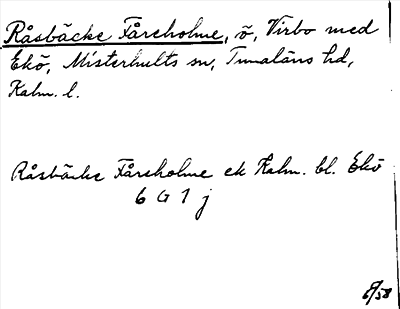 Råsbäcke Fåreholme, ö, Virbo med
Ekö, Misterhults sn, Tunaläns hd,
Kalm. l.
Råsbäcke Fåreholme ek Kalm. bl. Ekö
6 G 1 j
8/58